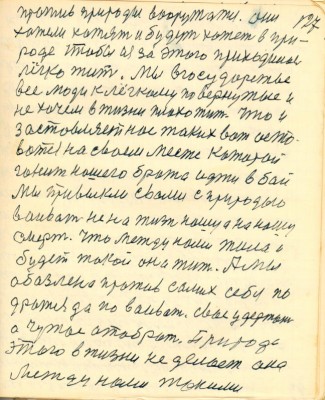 против природы вооружати. они 127
хотели хотят и будут хотет в при-
роде чтобы из за этого приходилос
лёгко жит. Мы в государстве
все люди к лёгкому повернутые и
не хочем в жизни плохо жит. Что и
заставляет нас таких вот оста-
ватся на своем месте которой
гонит нашего брата идти в бой
Мы привыкли свами с природою
ваиват не на жизн нашу а на нашу
смерт. Что между нами жила и
будет такой она жит. А мы
обазлена против самих себя по
дратся да по ваиват. свое удержат
а чужое отобрат. Природа
этого в жизни не делает она
между нами такими